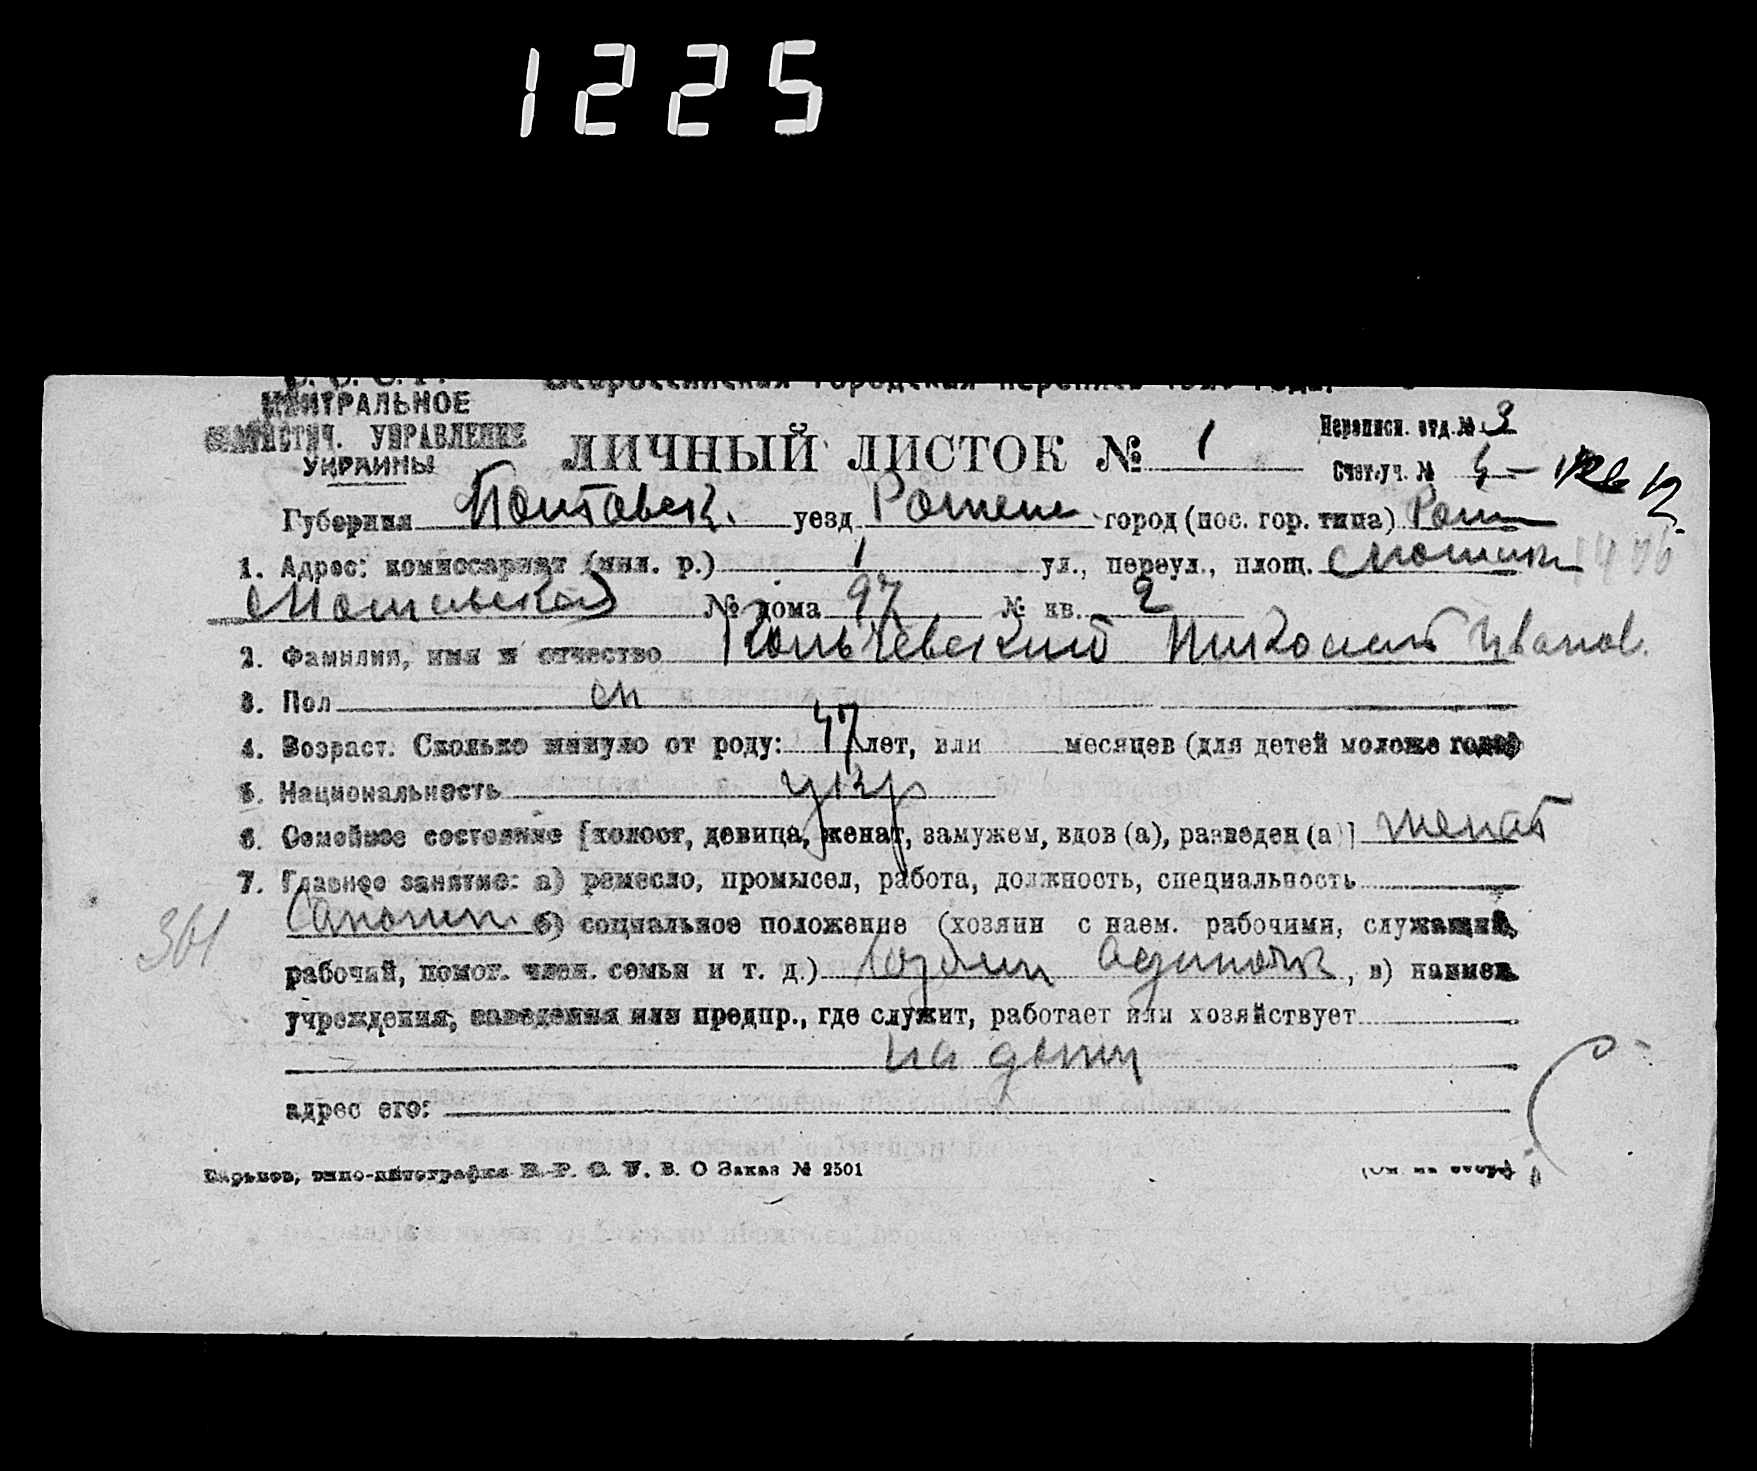 1225
Всероссийская городская перепись
ЦЕНТРАЛЬНОЕ
СТАТИСТИЧ. УПРАВЛЕНИЕ
УКРАИНЫ
ЛИЧНЫЙ ЛИСТОК № 1
Переписн. отд. № 3
Счет.уч. №
Губерния Полтавск. уезд Ромен город (пос. гор. типа) Ром
1. Адрес: комиссариат (мил. р.) 1 ул., переул., площ.
№ дома 97 № кв. 2
2. Фамилия, имя и отчество Кольчевский Николай Иванов.
3. Пол м
4. Возраст. Сколько минуло от роду: 47 лет, или месяцев (для детей моложе года)
5. Национальность укр
6. Семейное состояние [холост, девица, женат, замужем, вдов (а), разведен (а)] женат
7. Главное занятие: а) ремесло, промысел, работа, должность, специальность
Сапожн. б) социальное положение (хозяин с наем. рабочими, служащий,
361
рабочий, помог. член. семьи и т. д.) одиночк, в) наимен.
учреждения, заведения или предпр., где служит, работает или хозяйствует
на дому
адрес его:
Харьков, типо-литография В. О Заказ № 2501
(См. на обор.)